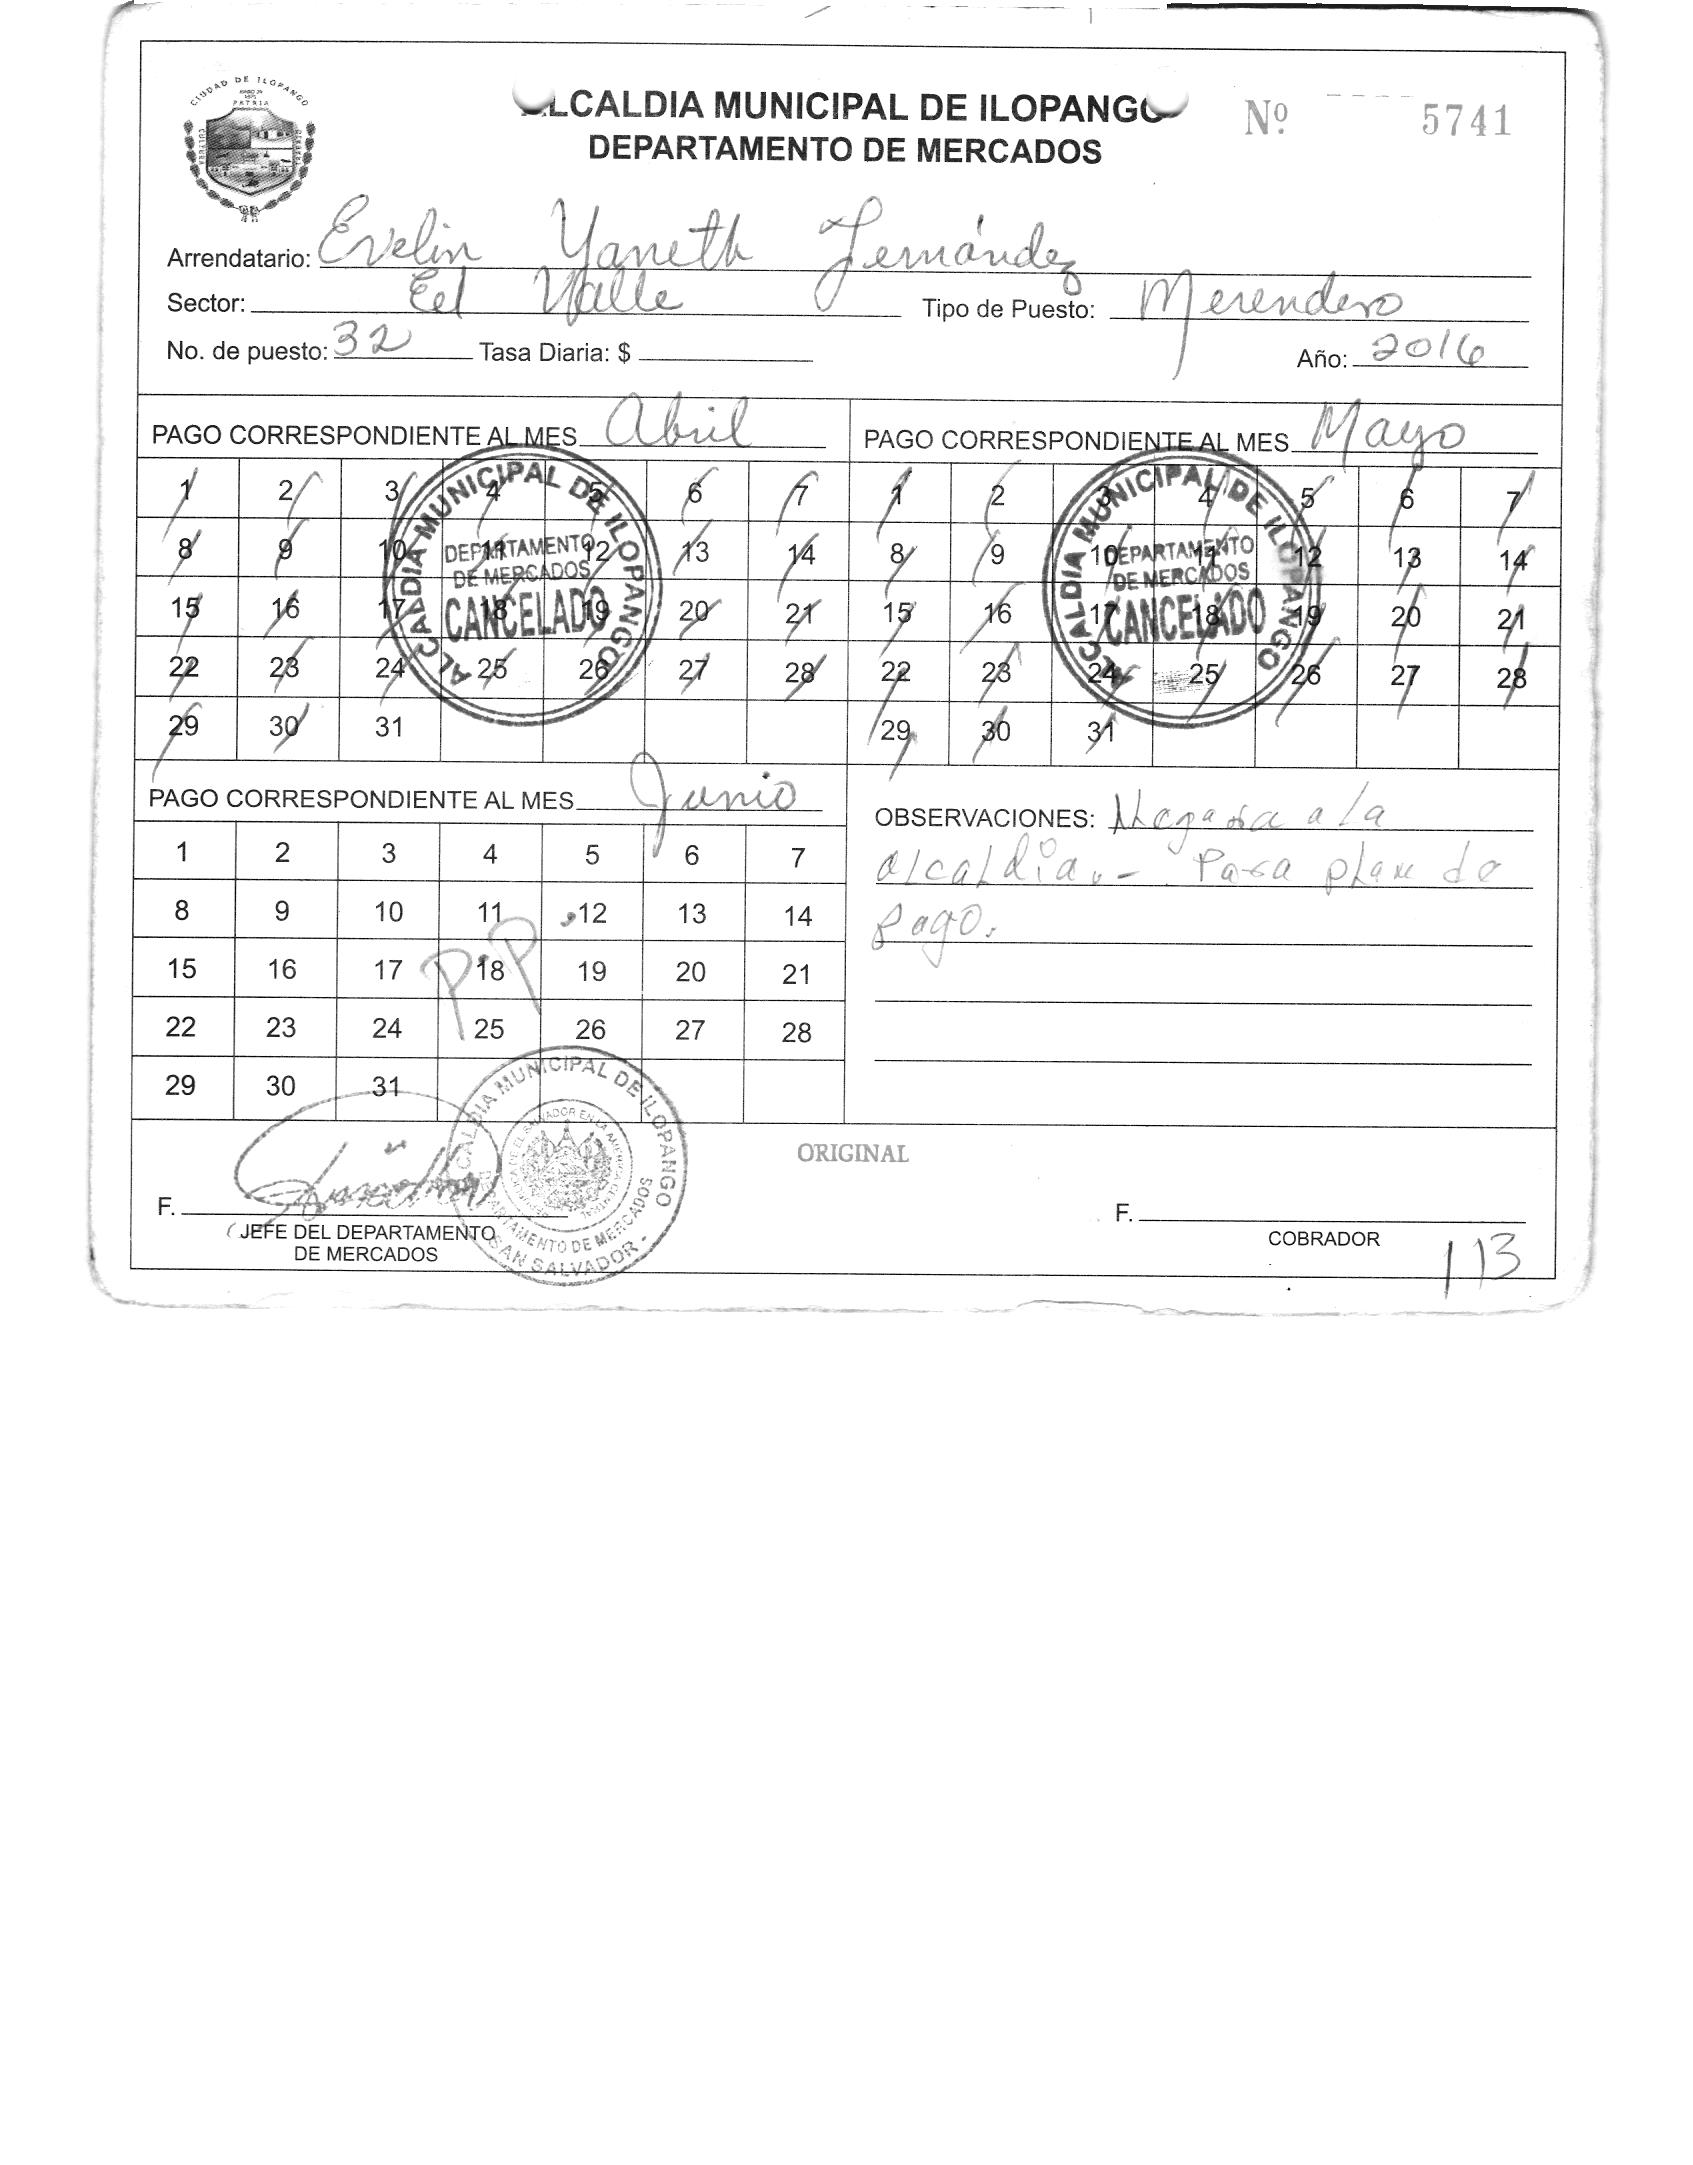 CIUDAD DE ILOPANGO
PATRIA
ALCALDIA MUNICIPAL DE ILOPANGO
Nº 5741
DEPARTAMENTO DE MERCADOS
Arrendatario: Evelin Yaneth Fernández
Sector: El Valle Tipo de Puesto: Merendero
No. de puesto: 32 Tasa Diaria: $ Año: 2016
PAGO CORRESPONDIENTE AL MES Abril
1 2 3 4 5 6 7
8 9 10 11 12 13 14
15 16 17 18 19 20 21
22 23 24 25 26 27 28
29 30 31
ALCALDIA MUNICIPAL DE ILOPANGO
DEPARTAMENTO
DE MERCADOS
CANCELADO
PAGO CORRESPONDIENTE AL MES Mayo
1 2 3 4 5 6 7
8 9 10 11 12 13 14
15 16 17 18 19 20 21
22 23 24 25 26 27 28
29 30 31
ALCALDIA MUNICIPAL DE ILOPANGO
DEPARTAMENTO
DE MERCADOS
CANCELADO
PAGO CORRESPONDIENTE AL MES Junio
1 2 3 4 5 6 7
8 9 10 11 12 13 14
15 16 17 18 19 20 21
22 23 24 25 26 27 28
29 30 31
P.P
OBSERVACIONES: a la
alcaldia.- Para plan de
pago.
ORIGINAL
F.
JEFE DEL DEPARTAMENTO
DE MERCADOS
ALCALDIA MUNICIPAL DE ILOPANGO
DEPARTAMENTO DE MERCADOS
SAN SALVADOR
F.
COBRADOR
113